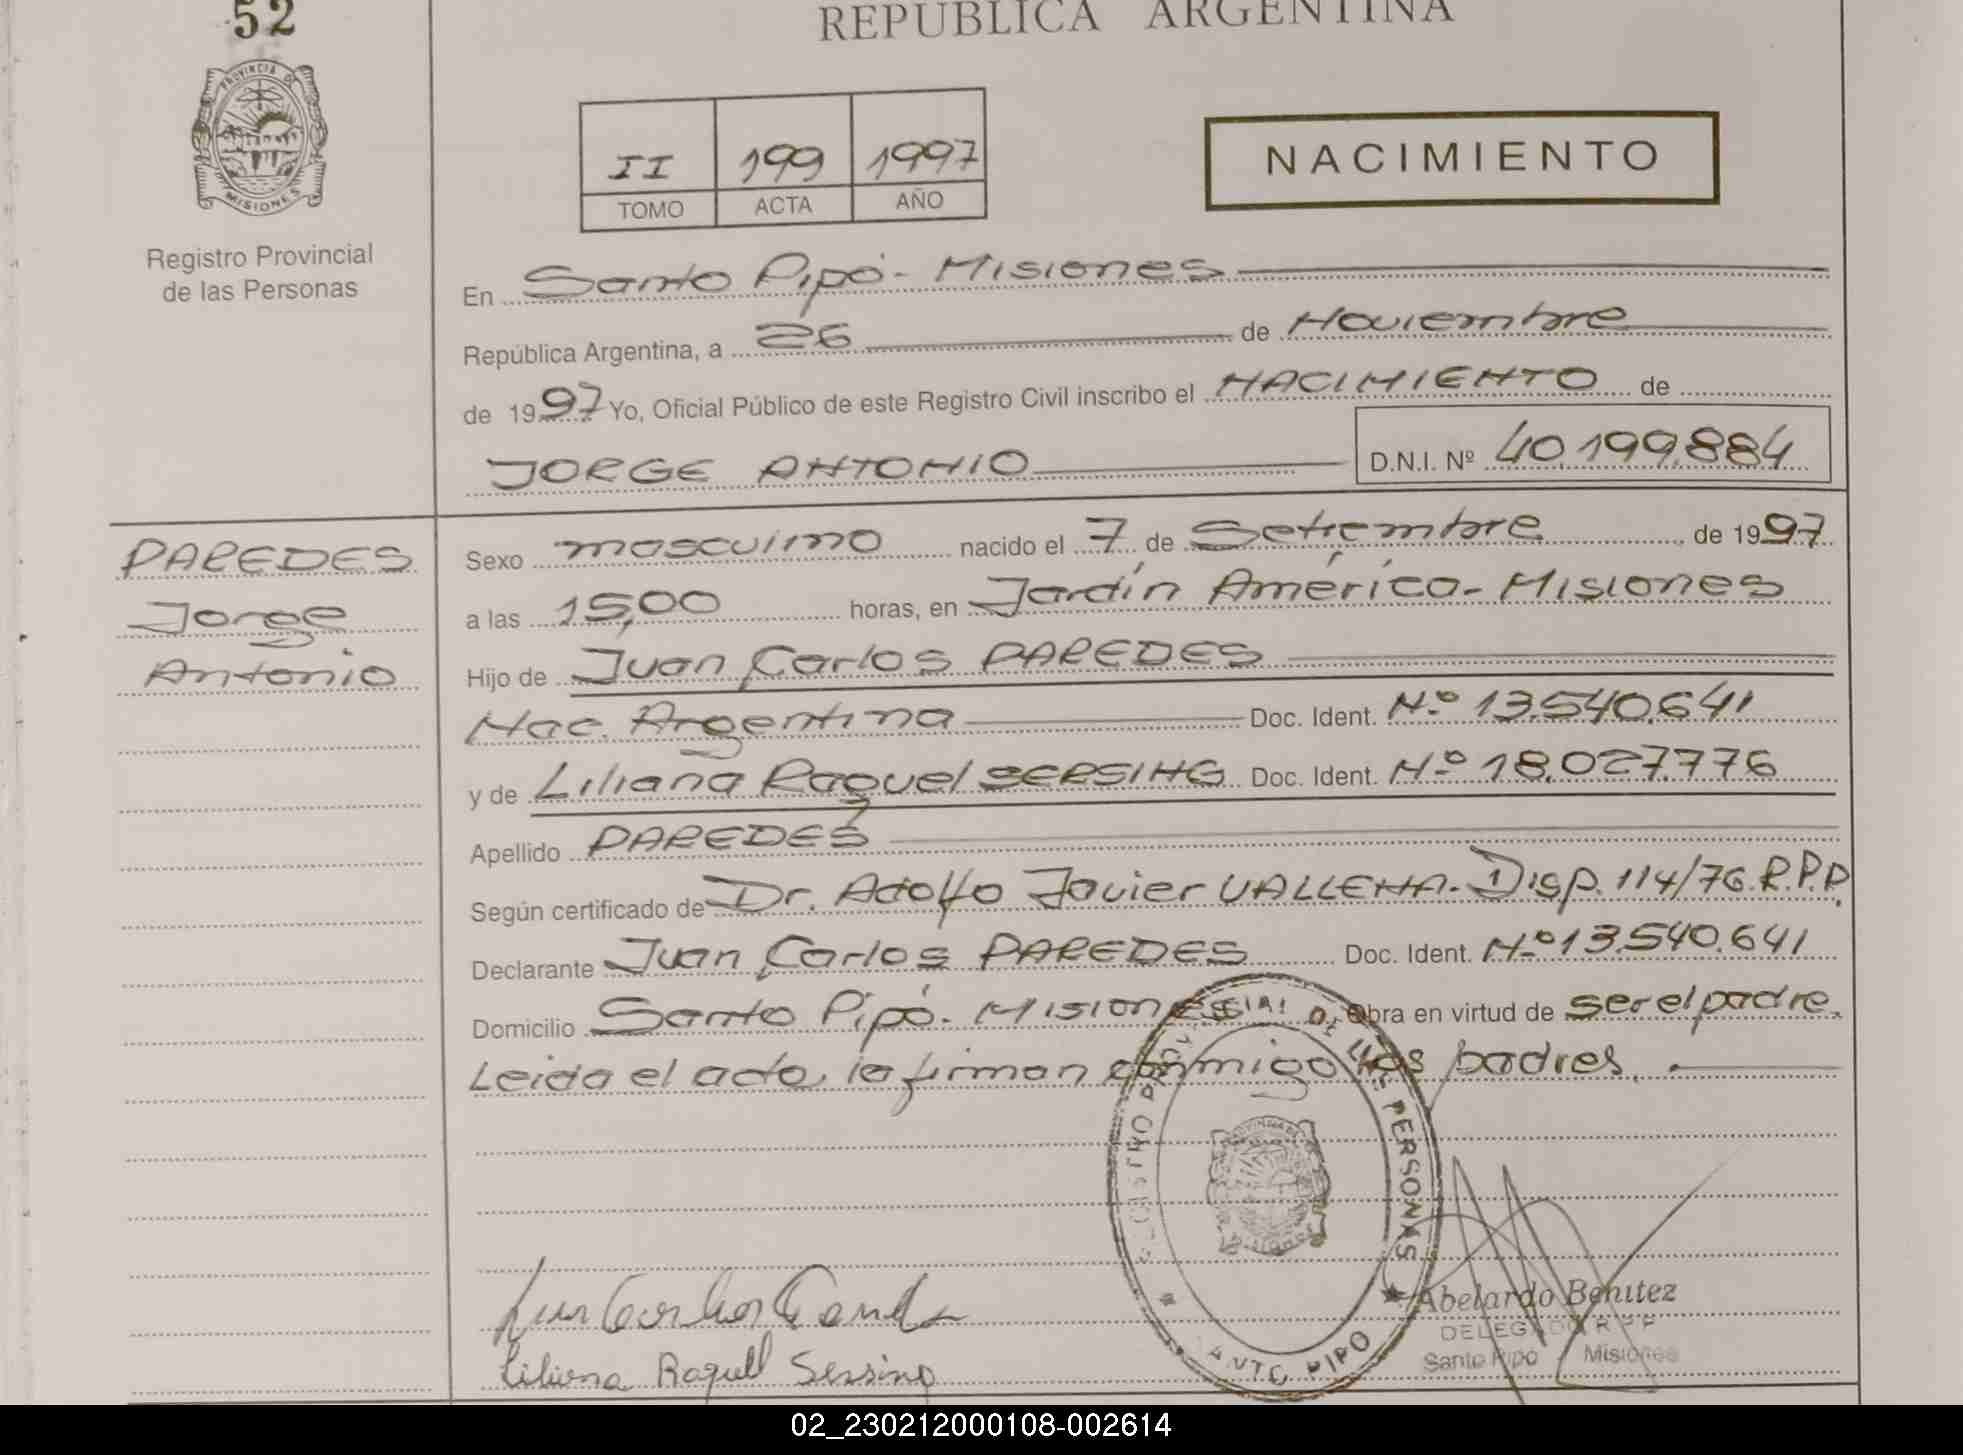 52
REPUBLICA ARGENTINA
PROVINCIA DE
MISIONES
Registro Provincial
de las Personas
II 199 1997
TOMO ACTA AÑO
NACIMIENTO
En Santo Pipó - Misiones
República Argentina, a 26 de Noviembre
de 1997 Yo, Oficial Público de este Registro Civil inscribo el NACIMIENTO de
JORGE ANTONIO D.N.I. Nº 40.199.884
PAREDES
Jorge
Antonio
Sexo masculino nacido el 7 de Setiembre de 1997
a las 15,00 horas, en Jardín América - Misiones
Hijo de Juan Carlos PAREDES
Nac. Argentina Doc. Ident. Nº 13.540.641
y de Liliana Raquel SERSING Doc. Ident. Nº 18.027.776
Apellido PAREDES
Según certificado de Dr. Adolfo Javier VALLENA. Disp. 114/76. R.P.P.
Declarante Juan Carlos PAREDES Doc. Ident. Nº 13.540.641
Domicilio Santo Pipó. Misiones Obra en virtud de ser el padre.
Leida el acta, la firman conmigo los padres.
REGISTRO PROVINCIAL DE LAS PERSONAS
SANTO PIPO
Juan Carlos Paredes
Liliana Raquel Sersing
Abelardo Benitez
DELEGADO R P P
Santo Pipó Misiones
02_230212000108-002614